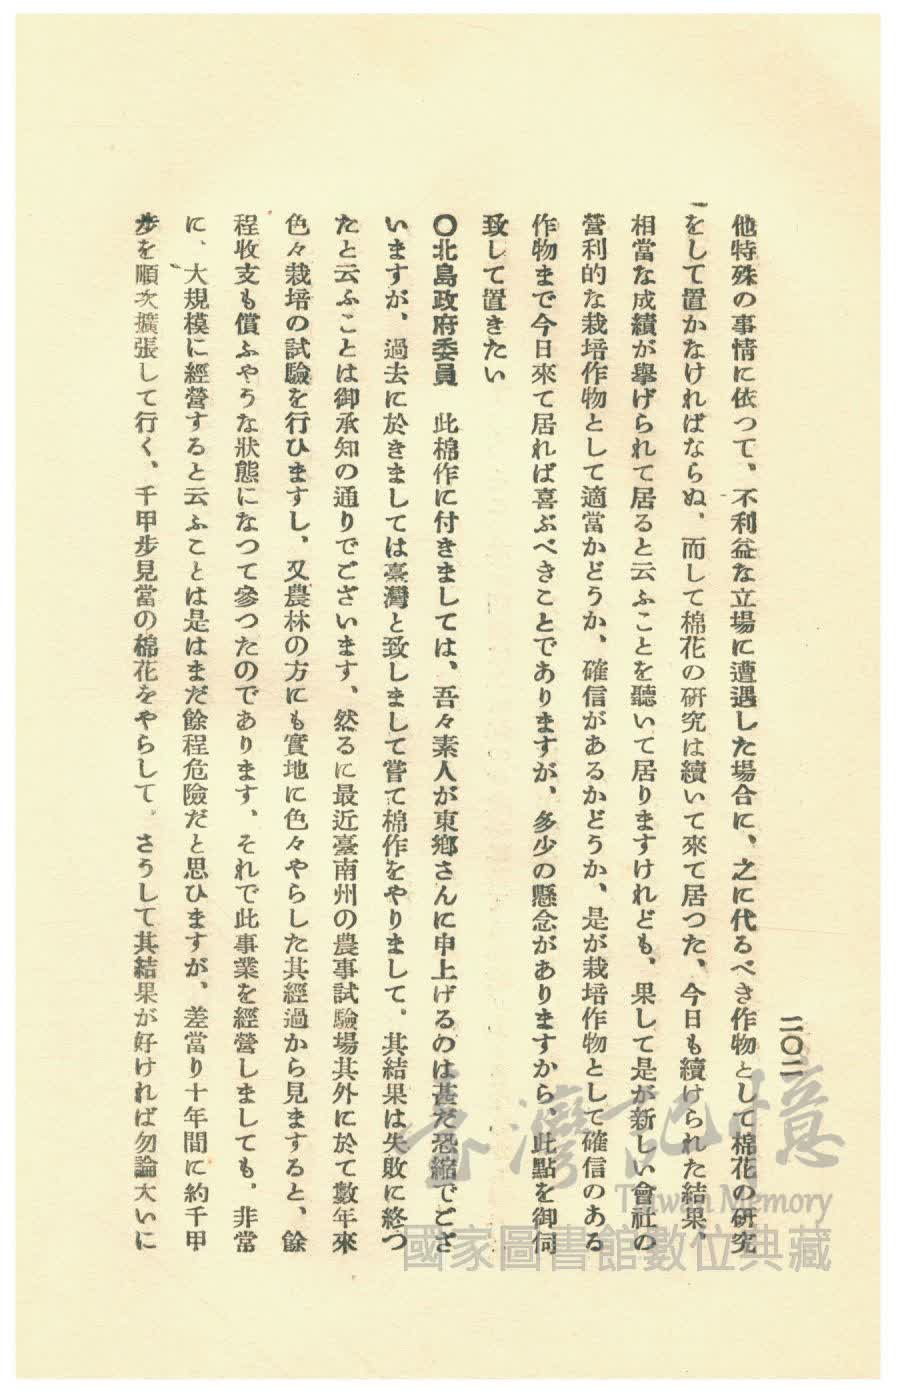 二〇二
他特殊の事情に依つて、不利益な立場に遭遇した場合に、之に代るべき作物として棉花の研究
をして置かなければならぬ、而して棉花の研究は續いて來て居つた、今日も續けられた結果、
相當な成績が擧げられて居ると云ふことを聽いて居りますけれども、果して是が新しい會社の
營利的な栽培作物として適當かどうか、確信があるかどうか、是が栽培作物として確信のある
作物まで今日來て居れば喜ぶべきことでありますが、多少の懸念がありますから、此點を御伺
致して置きたい
〇北島政府委員　此棉作に付きましては、吾々素人が東鄕さんに申上げるのは甚だ恐縮でござ
いますが、過去に於きましては臺灣と致しまして嘗て棉作をやりまして、其結果は失敗に終つ
たと云ふことは御承知の通りでございます、然るに最近臺南州の農事試驗場其外に於て數年來
色々栽培の試驗を行ひますし、又農林の方にも實地に色々やらした其經過から見ますると、餘
程收支も償ふやうな狀態になつて參つたのであります、それで此事業を經營しましても、非常
に、大規模に經營すると云ふことは是はまだ餘程危險だと思ひますが、差當り十年間に約千甲
步を順次擴張して行く、千甲步見當の棉花をやらして、さうして其結果が好ければ勿論大いに
臺灣記憶
Taiwan Memory
國家圖書館數位典藏